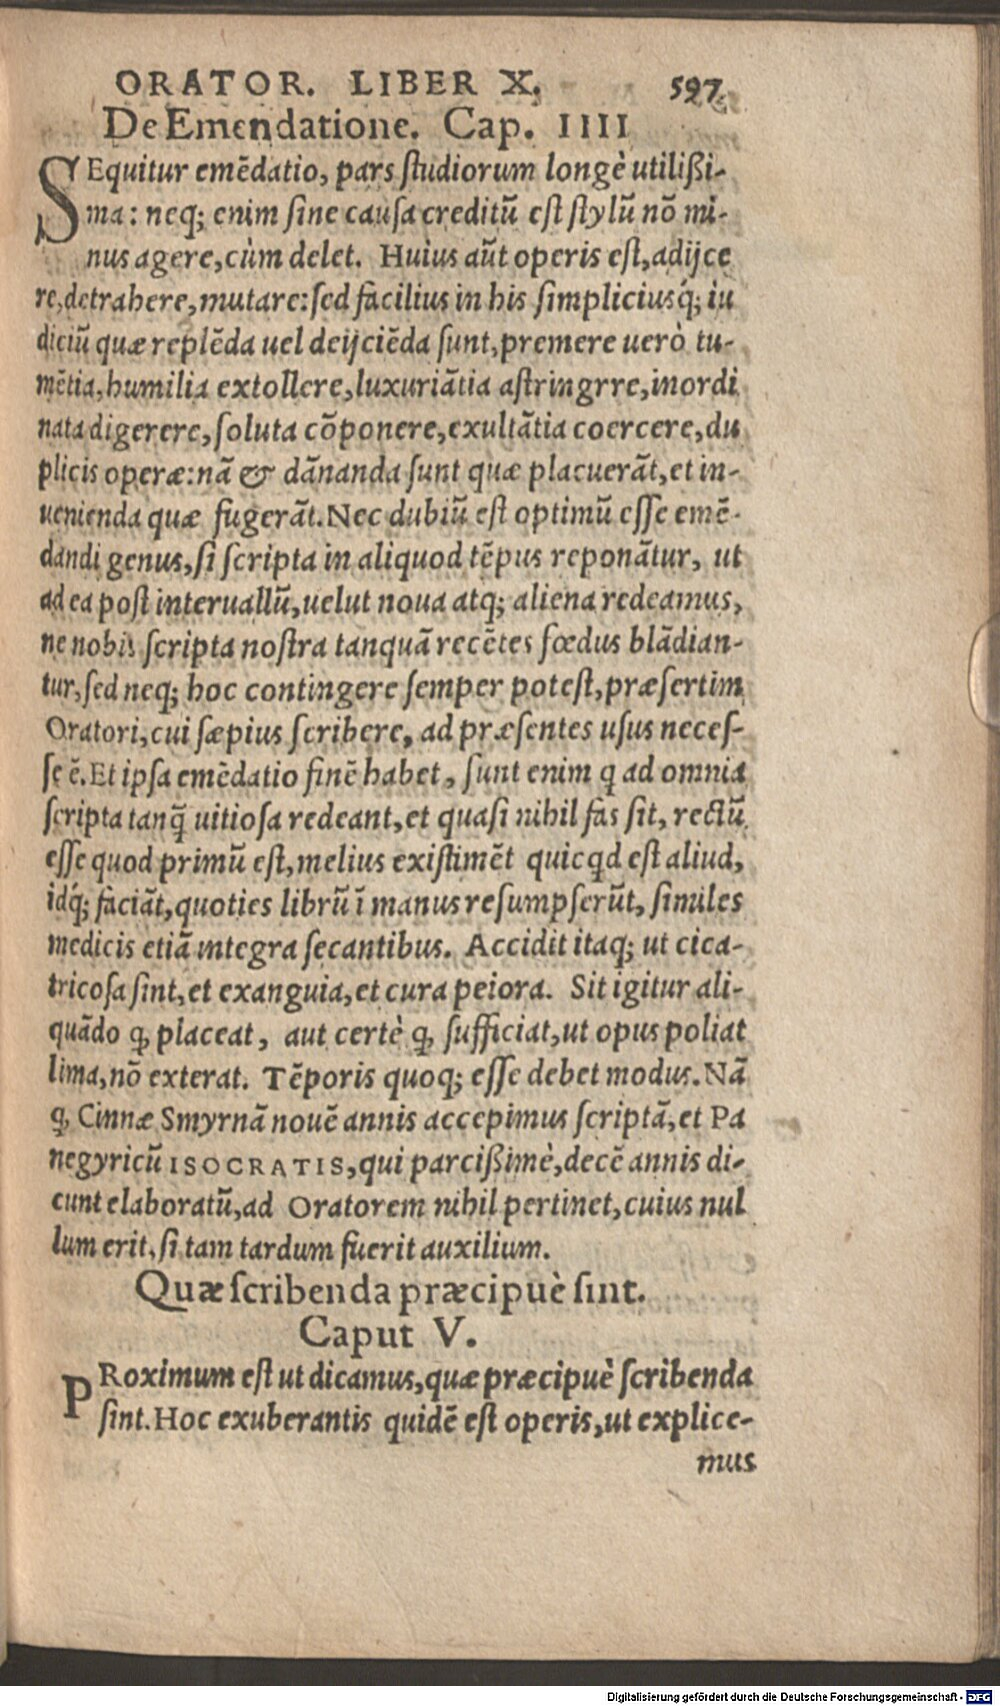 ORATOR. LIBER X. 597
De Emendatione. Cap. IIII
SEquitur emēdatio, pars studiorum longè utilißi-
ma: neq; enim sine causa creditū est stylū nō mi-
nus agere, cùm delet. Huius aūt operis est, adijce
re, detrahere, mutare: sed facilius in his simpliciusq́; iu
diciū quæ replēda uel deijciēda sunt, premere uerò tu-
mētia, humilia extollere, luxuriātia astringrre, inordi
nata digerere, soluta cōponere, exultātia coercere, du
plicis operæ: nā & dānanda sunt quæ placuerāt, et in-
uenienda quæ fugerāt. Nec dubiū est optimū esse emē-
dandi genus, si scripta in aliquod tēpus reponātur, ut
ad ea post interuallū, uelut noua atq; aliena redeamus,
ne nobis scripta nostra tanquā recētes fœdus blādian-
tur, sed neq; hoc contingere semper potest, præsertim
Oratori, cui sæpius scribere, ad præsentes usus neces-
se ē. Et ipsa emēdatio finē habet, sunt enim q ad omnia
scripta tanq̄ uitiosa redeant, et quasi nihil fas sit, rectū
esse quod primū est, melius existimēt quicqd est aliud,
idq́; faciāt, quoties librū ī manus resumpserūt, similes
medicis etiā integra secantibus. Accidit itaq; ut cica-
tricosa sint, et exanguia, et cura peiora. Sit igitur ali-
quādo ꝙ placeat, aut certè ꝙ sufficiat, ut opus poliat
lima, nō exterat. Tēporis quoq; esse debet modus. Nā
ꝙ Cinnæ Smyrnā nouē annis accepimus scriptā, et Pa
negyricū ISOCRATIS, qui parcißimè, decē annis di-
cunt elaboratū, ad Oratorem nihil pertinet, cuius nul
lum erit, si tam tardum fuerit auxilium.
Quæ scribenda præcipuè sint.
Caput V.
PRoximum est ut dicamus, quæ præcipuè scribenda
sint. Hoc exuberantis quidē est operis, ut explice-
mus
Digitalisierung gefördert durch die Deutsche Forschungsgemeinschaft - DFG